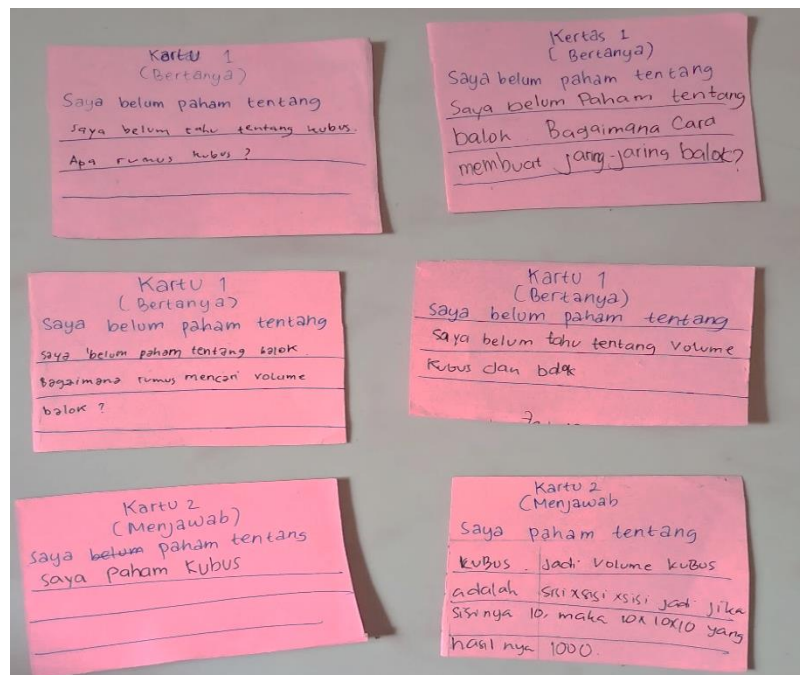 Kartu 1
(Bertanya)
Saya belum paham tentang
saya belum tahu tentang kubus.
Apa rumus kubus ?
Kertas 1
( Bertanya)
Saya belum paham tentang
Saya belum Paham tentang
balok Bagaimana Cara
membuat jaring-jaring balok?
Kartu 1
( Bertanya)
Saya belum paham tentang
saya belum paham tentang balok
Bagaimana rumus mencari volume
balok ?
Kartu 1
(Bertanya)
Saya belum paham tentang
saya belum tahu tentang Volume
Kubus dan balok
Kartu 2
(Menjawab)
Saya belum paham tentang
saya Paham Kubus
Kartu 2
(Menjawab
Saya paham tentang
KUBUS. Jadi Volume KUBUS
adalah sisi x sisi x sisi jadi jika
sisi nya 10, maka 10x 10x10 yang
hasil nya 1000.